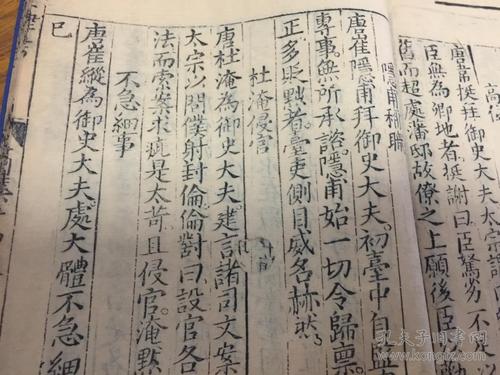 高位
唐韋挺拜御史大夫太宗謂
臣無為卿地者挺謝曰臣駑劣不
舊而超處藩邸故僚之上願後臣
隱甫稱職
唐崔隱甫拜御史大夫初臺中自監
專事無所承諮隱甫始一切令歸稟
正多貶黜者臺吏側目威名赫然
杜淹侵官
唐杜淹為御史大夫建言諸司文案
太宗以問僕射封倫倫對曰設官各
法而索案求疵是太苛且侵官淹默
不急細事
唐崔縱為御史大夫處大體不急細
巳
孔夫子旧书网
www.kongfz.com